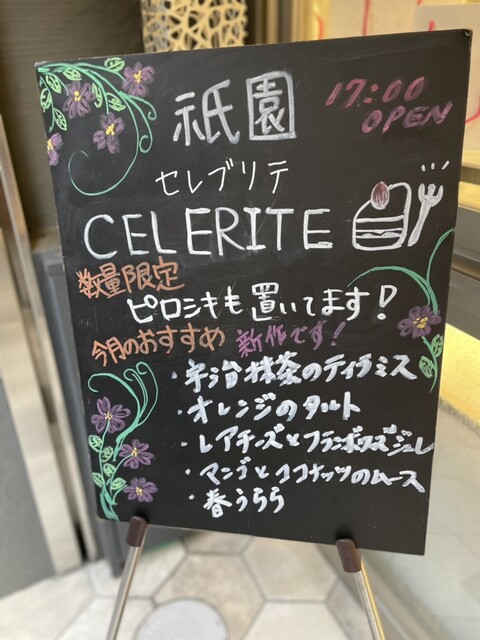 祇園
17:00
OPEN
セレブリテ
CELERITE
数量限定
ピロシキも置いてます!
今月のおすすめ 新作です!
・宇治抹茶のティラミス
・オレンジのタルト
・レアチーズとフランボワーズジュレ
・マンゴとココナッツのムース
・春うらら